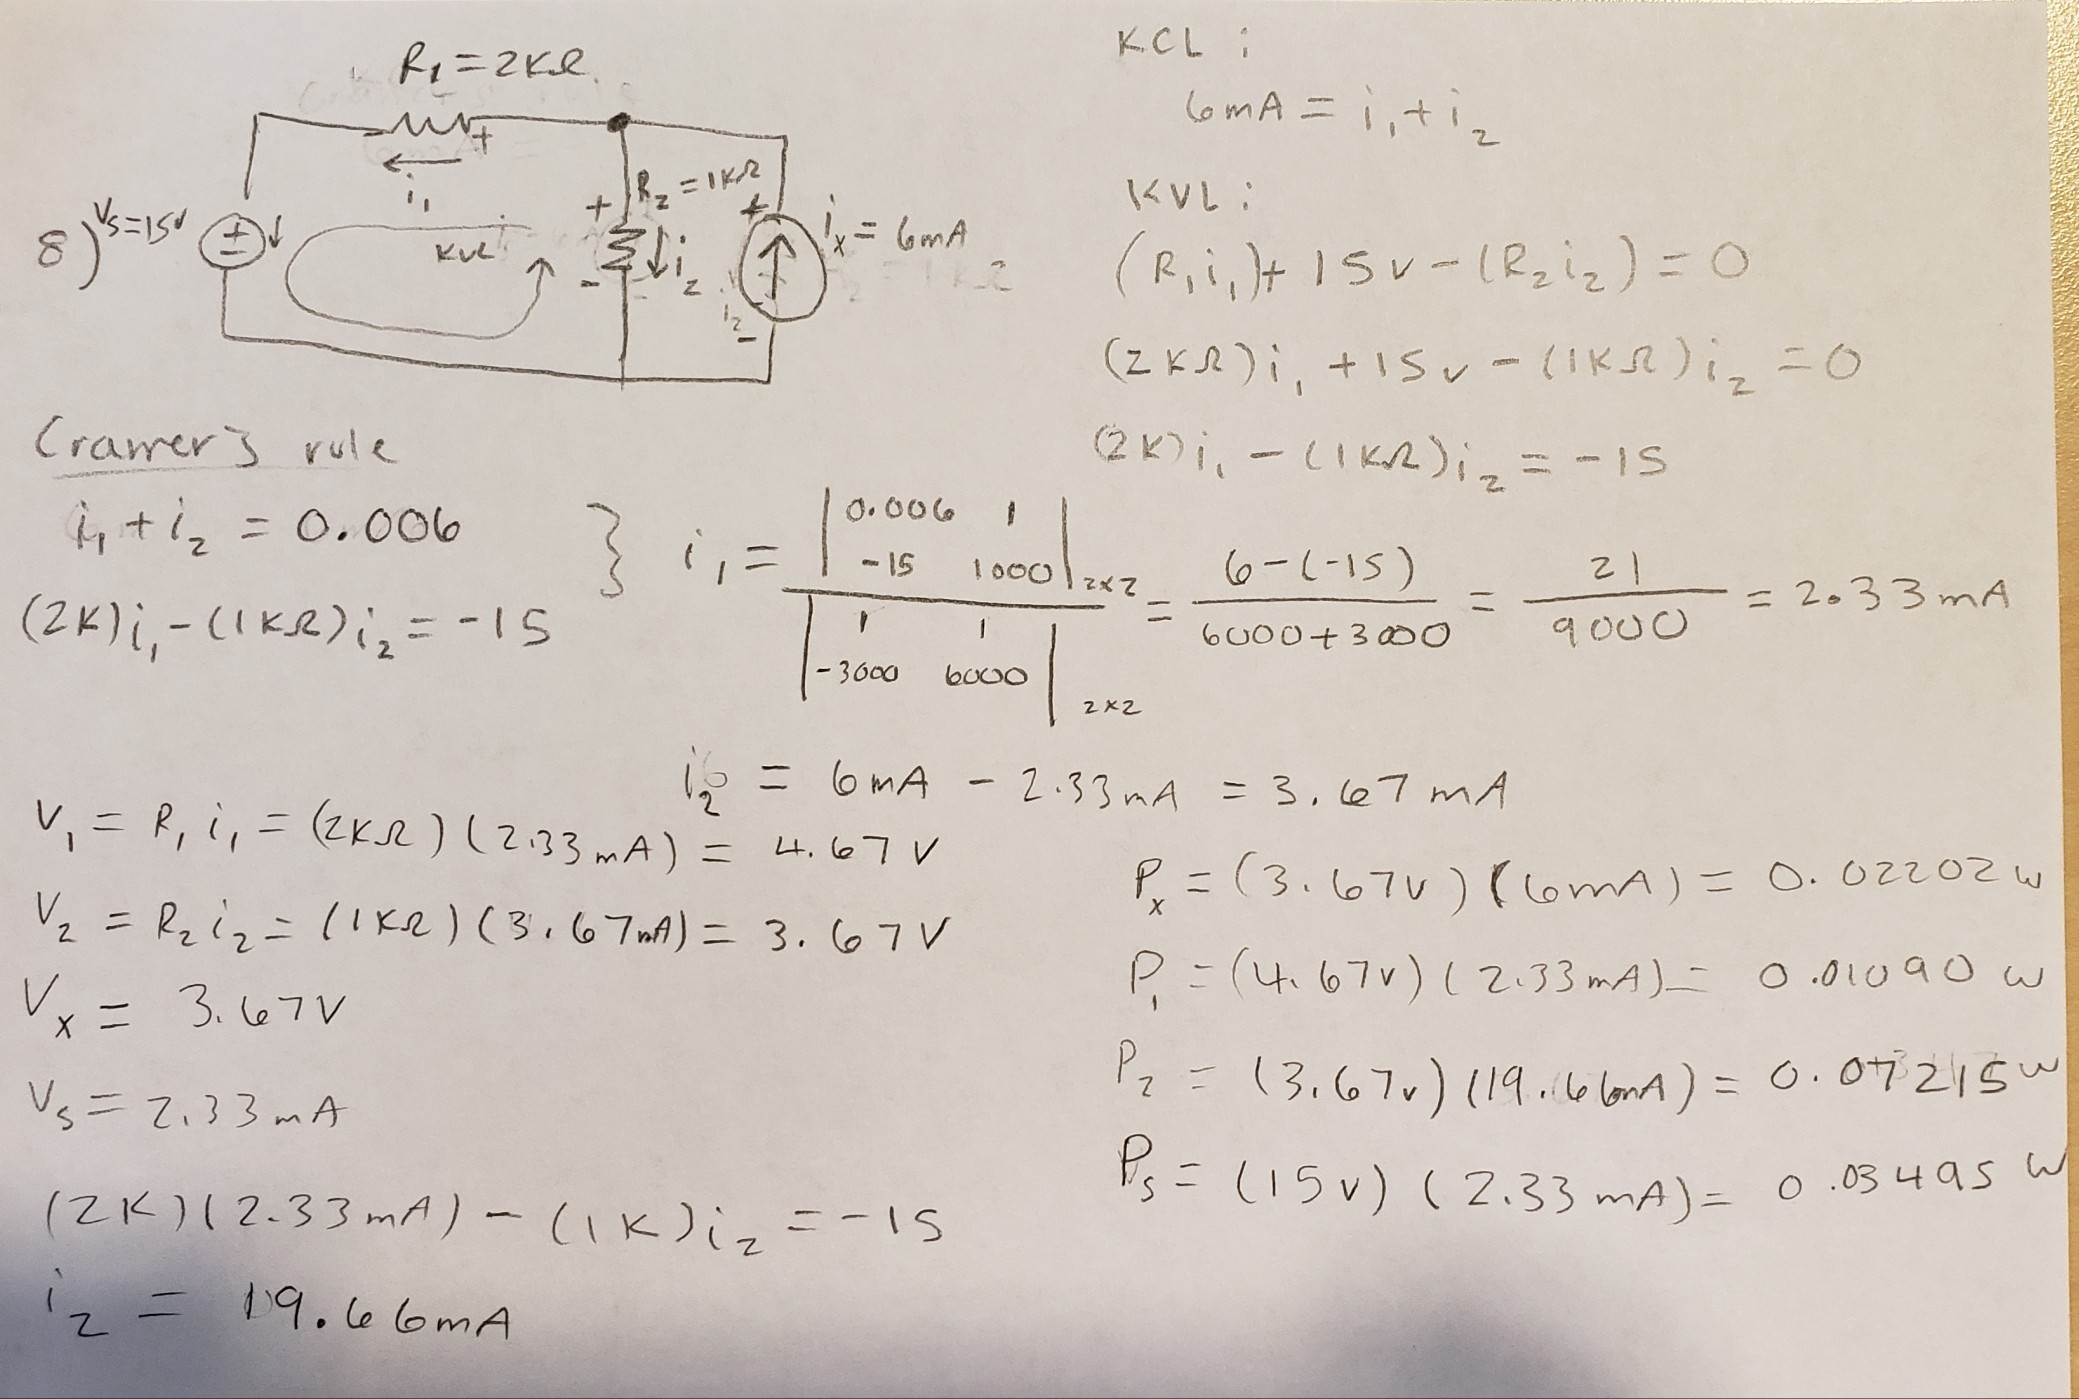 8)
R₁ = 2kΩ
Vs = 15v
+ -
i₁
KVL
+
R₂ = 1kΩ
i₂
-
+
iₓ = 6mA
i₂
-
KCL :
6mA = i₁ + i₂
KVL :
(R₁i₁) + 15v - (R₂i₂) = 0
(2KΩ)i₁ + 15v - (1KΩ)i₂ = 0
(2K)i₁ - (1KΩ)i₂ = -15
Cramer's rule
i₁ + i₂ = 0.006
(2K)i₁ - (1KΩ)i₂ = -15
} i₁ = |0.006 1
-15 1000|2x2
|1 1
-3000 6000|2x2
= 6-(-15) / 6000+3000 = 21 / 9000 = 2.33mA
i₂ = 6mA - 2.33mA = 3.67mA
V₁ = R₁i₁ = (2KΩ)(2.33mA) = 4.67V
V₂ = R₂i₂ = (1KΩ)(3.67mA) = 3.67V
Vₓ = 3.67V
Vs = 2.33mA
(2K)(2.33mA) - (1K)i₂ = -15
i₂ = 19.66mA
Pₓ = (3.67v)(6mA) = 0.02202w
P₁ = (4.67v)(2.33mA) = 0.01090w
P₂ = (3.67v)(19.66mA) = 0.07215w
Ps = (15v)(2.33mA) = 0.03495w